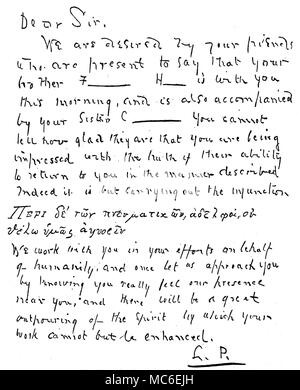 Dear Sir.
We are desired by your friends
who are present to say that your
brother F____ H__ is with you
this morning, and is also accompanied
by your Sister C______ You cannot
tell how glad they are that you are being
impressed with the truth of their ability
to return to you in the manner described
Indeed it is but carrying out the injunction
Περι δὲ τῶν πνευματικῶν, ἀδελφοί, οὐ
θέλω ὑμᾶς ἀγνοεῖν
We work with you in your efforts on behalf
of humanity: and once let us approach you
by knowing you really feel our presence
near you, and there will be a great
outpouring of the spirit by which your
work cannot but be enhanced.
L. P.
alamy
Image ID: MC6EJH
www.alamy.com